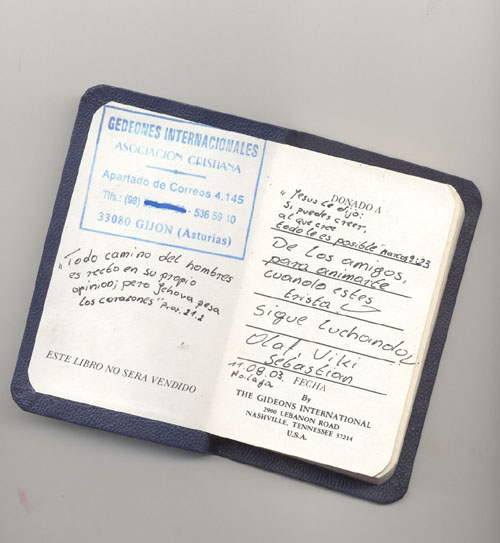 GEDEONES INTERNACIONALES
ASOCIACION CRISTIANA
Apartado de Correos 4.145
Tlfs.: (98) 536 59 10
33080 GIJON (Asturias)
"Todo camino del hombres
es recto en su propio
opinion; pero Jehova pesa
los corazones" Prov. 21:2
ESTE LIBRO NO SERA VENDIDO
DONADO A
"Jesus le dijo:
Si puedes creer,
al que cree
todo le es posible" marcos 9:23
De los amigos,
para animarte
cuando estes
trista
Sigue luchando
Olaf, Viki
Sebastian
11.08.03. FECHA
Malaga
By
THE GIDEONS INTERNATIONAL
2900 LEBANON ROAD
NASHVILLE, TENNESSEE 37214
U.S.A.